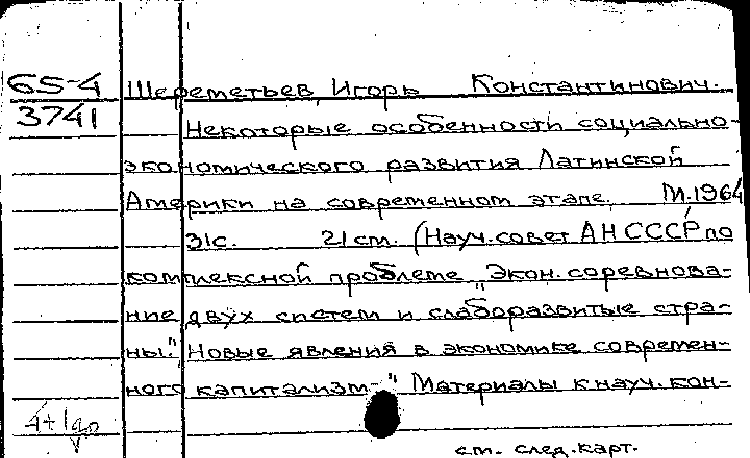 65-4
3741
Шереметьев, Игорь Константинович.
Некоторые особенности социально-
экономического развития Латинской
Америки на современном этапе. М. 1964
31с. 21см. (Науч. совет АН СССР по
комплексной проблеме "Экон. соревнова-
ние двух систем и слаборазвитые стра-
ны." Новые явления в экономике современ-
ного капитализм-" Материалы к науч. кон-
4+1
см. след. карт.